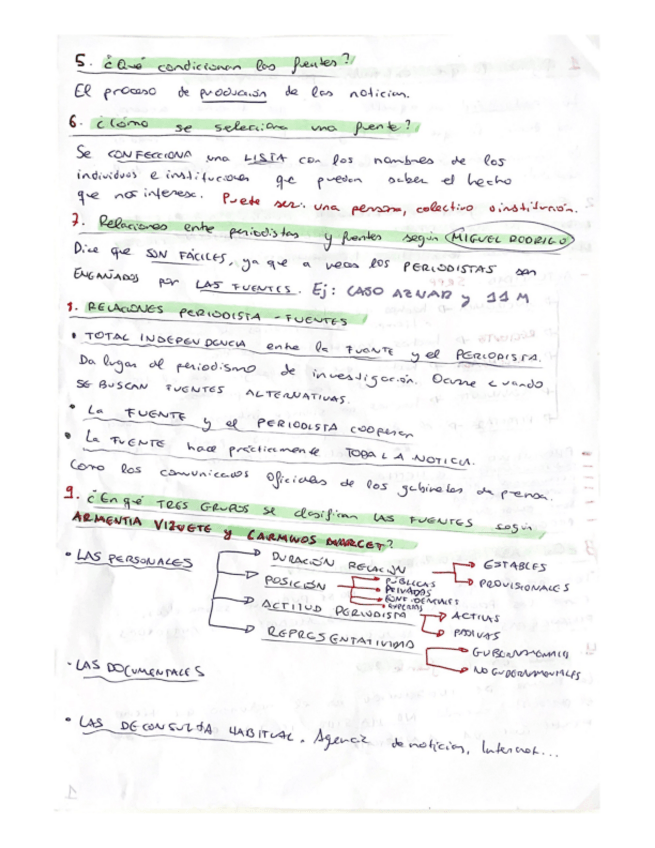 5. ¿Qué condicionan las fuentes?
El proceso de producción de las noticias.
6. ¿Cómo se selecciona una fuente?
Se CONFECCIONA una LISTA con los nombres de los
individuos e instituciones que puedan saber el hecho
que nos interese. Puete ser: una persona, colectivo o institución.
7. Relaciones entre periodistas y fuentes según MIGUEL RODRIGO
Dice que SON FÁCILES, ya que a veces los PERIODISTAS son
ENGAÑADOS por LAS FUENTES. Ej: CASO AZNAR y 11 M
1. RELACIONES PERIODISTA - FUENTES
• TOTAL INDEPENDENCIA entre la FUENTE y el PERIODISTA.
Da lugar al periodismo de investigación. Ocurre cuando
SE BUSCAN FUENTES ALTERNATIVAS.
• La FUENTE y el PERIODISTA cooperan
• La FUENTE hace prácticamente TODA LA NOTICIA.
Como los comunicados oficiales de los gabinetes de prensa.
9. ¿En qué TRES GRUPOS se clasifican LAS FUENTES según
ARMENTIA VIZUETE y CAMINOS MARCET?
• LAS PERSONALES
DURACIÓN RELACIÓN
ESTABLES
PROVISIONALES
POSICIÓN
PÚBLICAS
PRIVADAS
CONFIDENCIALES
EXPERTAS
ACTITUD PERIODISTA
ACTIVAS
PASIVAS
REPRESENTATIVIDAD
GUBERNAMENTALES
NO GUBERNAMENTALES
• LAS DOCUMENTALES
• LAS DE CONSULTA HABITUAL. Agencia de noticias, Internet...